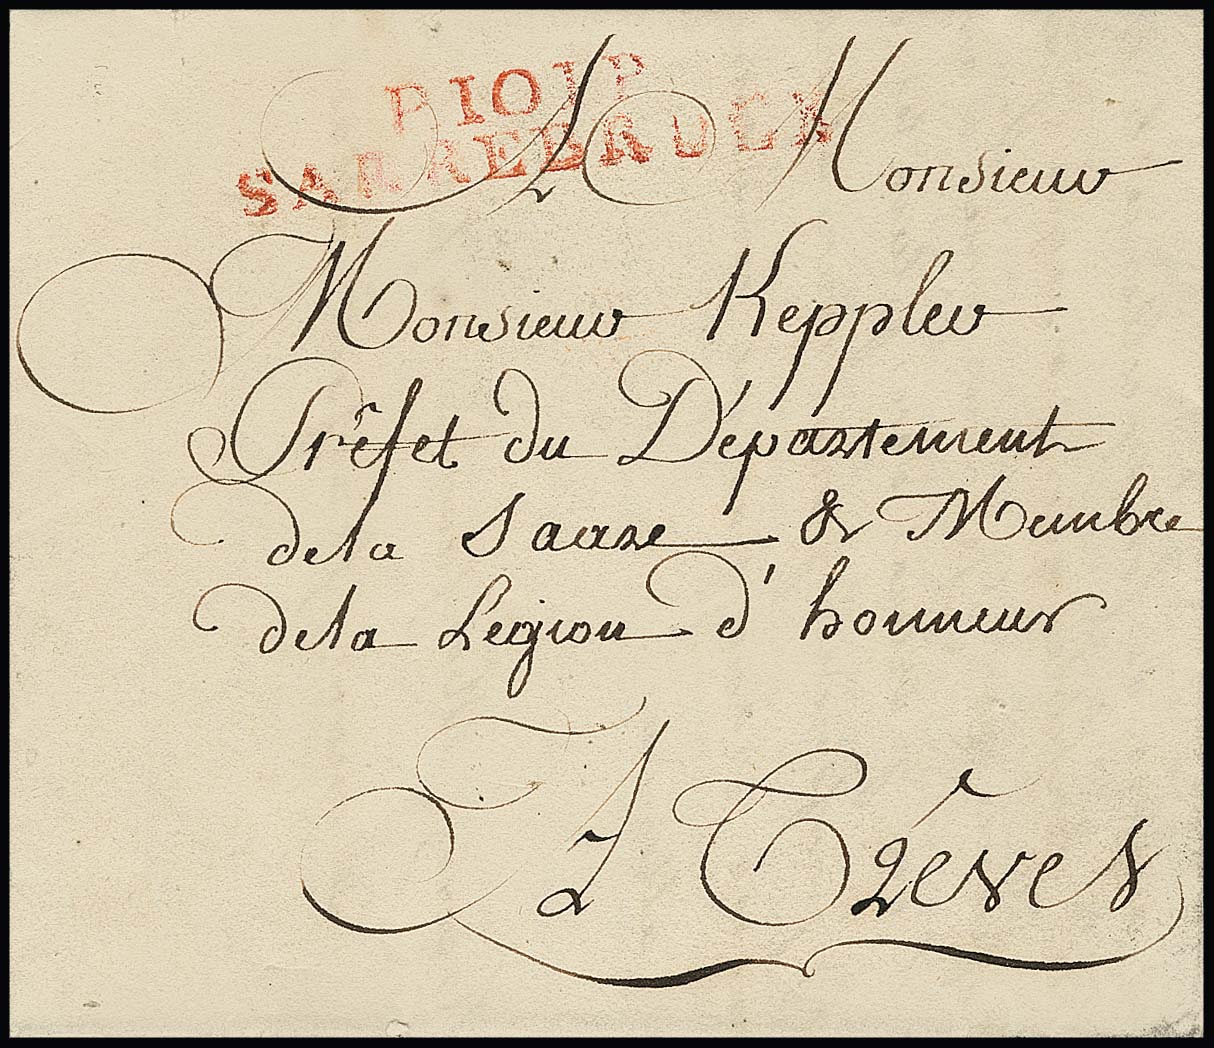 P101P
SARREBRUCK
A Monsieur
Monsieur Keppler
Préfet du Département
de la Saare & Membre
de la Légion d'honneur
A Tréves